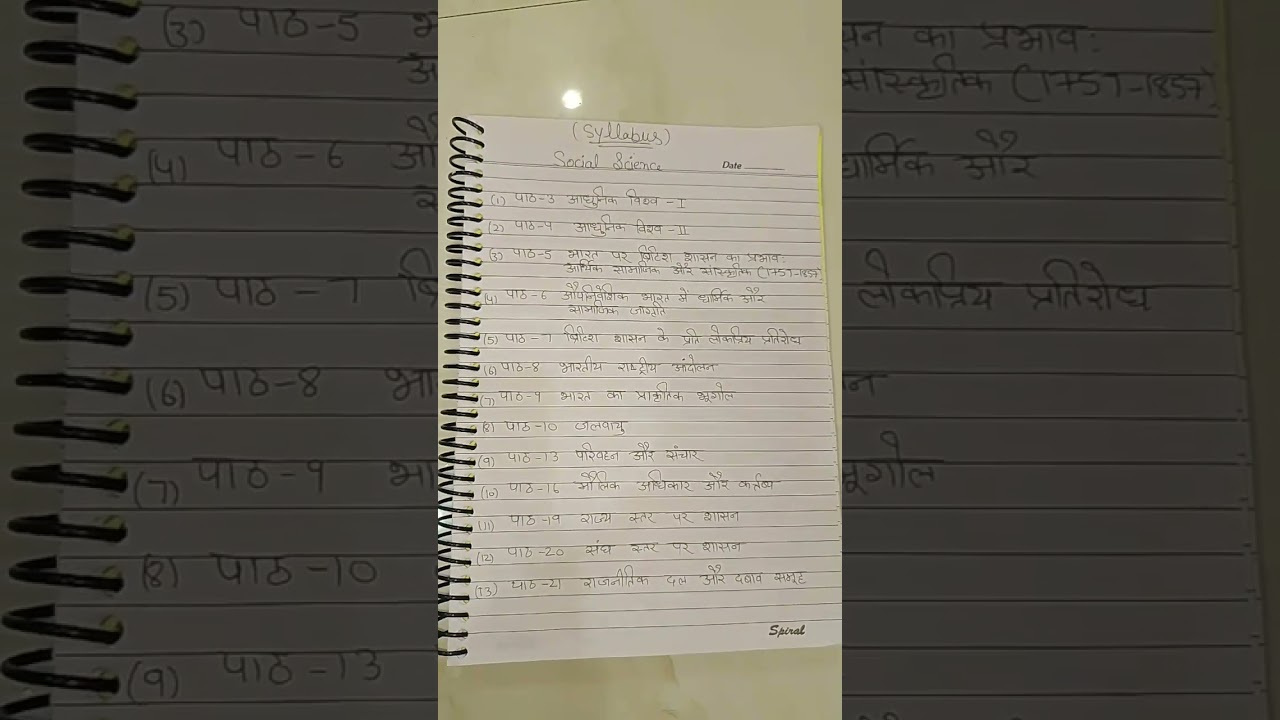 (Syllabus)
Social Science
Date
(1) पाठ-3 आधुनिक विश्व -I
(2) पाठ-4 आधुनिक विश्व -II
(3) पाठ-5 भारत पर ब्रिटिश शासन का प्रभाव:
आर्थिक सामाजिक और सांस्कृतिक (1757-1857)
(4) पाठ-6 औपनिवेशिक भारत में धार्मिक और
सामाजिक जागृति
(5) पाठ-7 ब्रिटिश शासन के प्रति लोकप्रिय प्रतिरोध
(6) पाठ-8 भारतीय राष्ट्रीय आंदोलन
(7) पाठ-9 भारत का प्राकृतिक भूगोल
(8) पाठ-10 जलवायु
(9) पाठ-13 परिवहन और संचार
(10) पाठ-16 मौलिक अधिकार और कर्तव्य
(11) पाठ-19 राज्य स्तर पर शासन
(12) पाठ-20 संघ स्तर पर शासन
(13) पाठ-21 राजनीतिक दल और दबाव समूह
Spiral